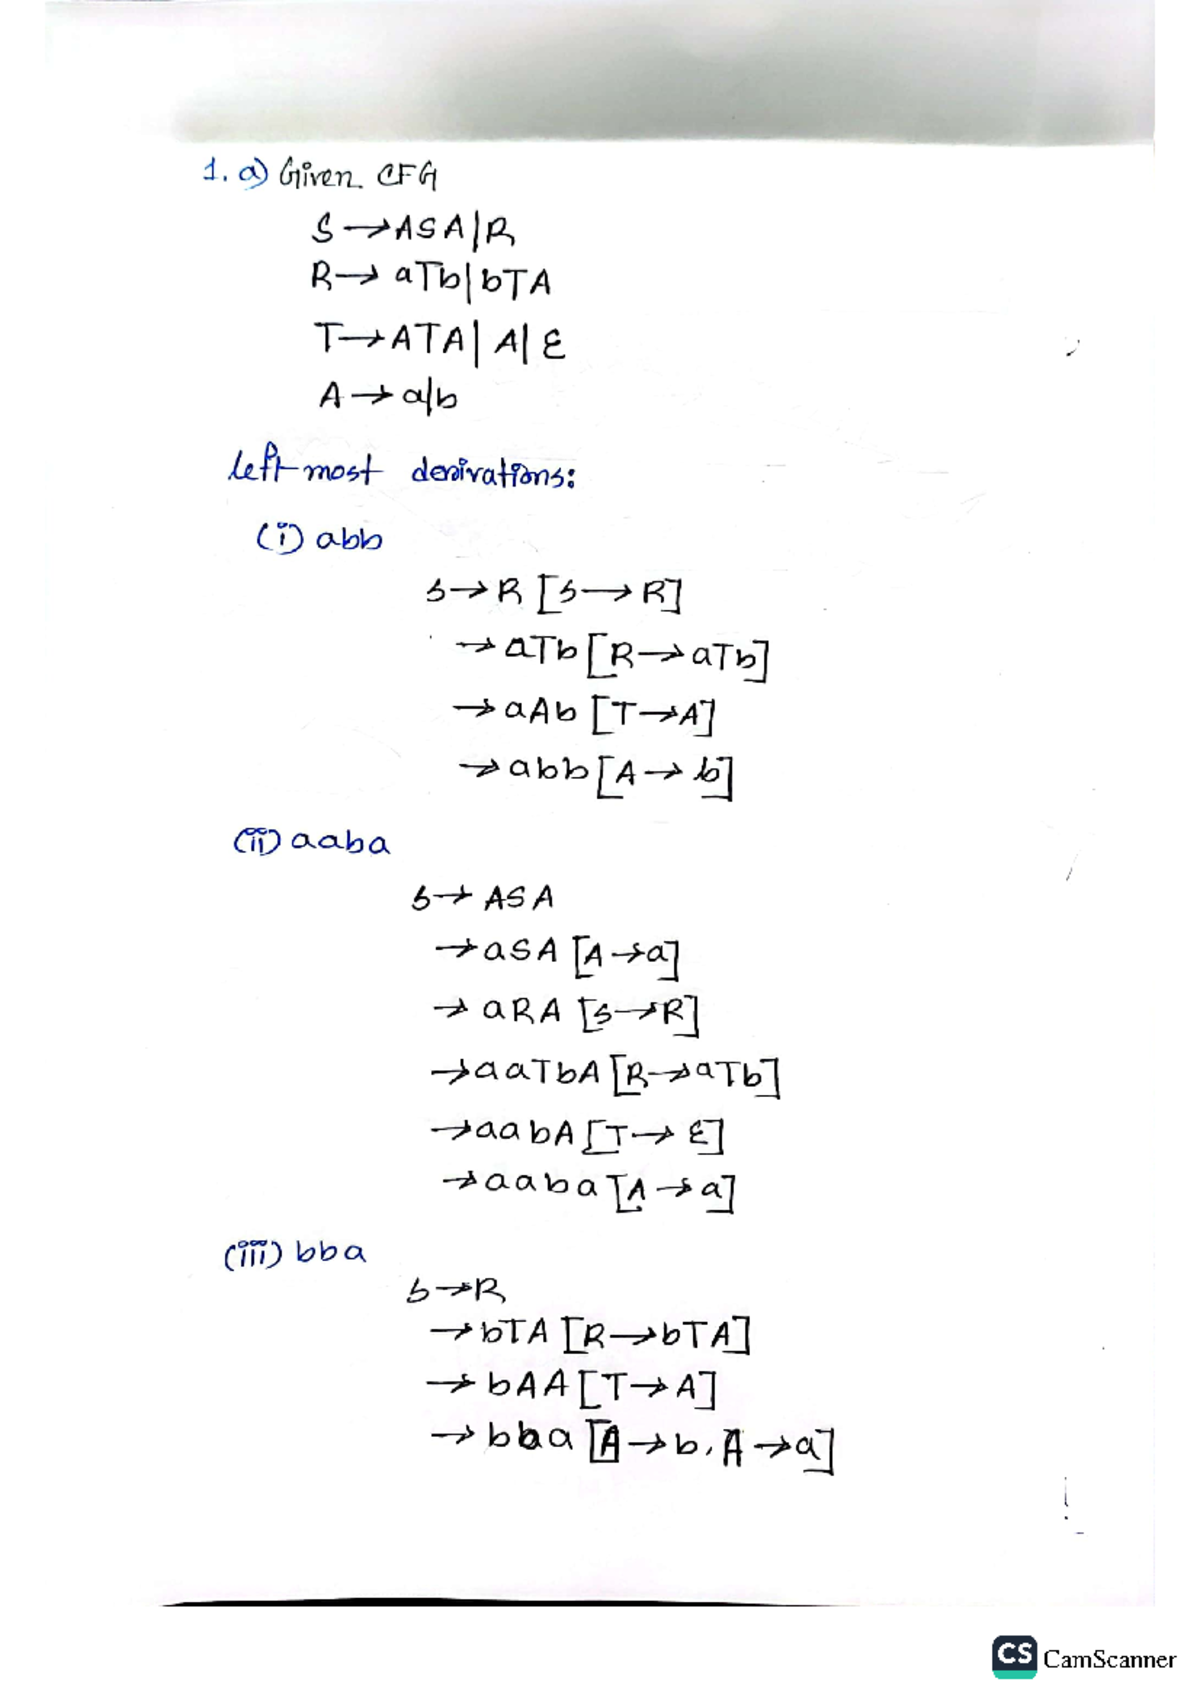 1. a) Given CFG
S → ASA | R
R → aTb | bTA
T → ATA | A | ε
A → a|b
left-most derivations:
(i) abb
S → R [S → R]
→ aTb [R → aTb]
→ aAb [T → A]
→ abb [A → b]
(ii) aaba
S → ASA
→ aSA [A → a]
→ aRA [S → R]
→ aaTbA [R → aTb]
→ aabA [T → ε]
→ aaba [A → a]
(iii) bba
S → R
→ bTA [R → bTA]
→ bAA [T → A]
→ bba [A → b, A → a]
CS CamScanner